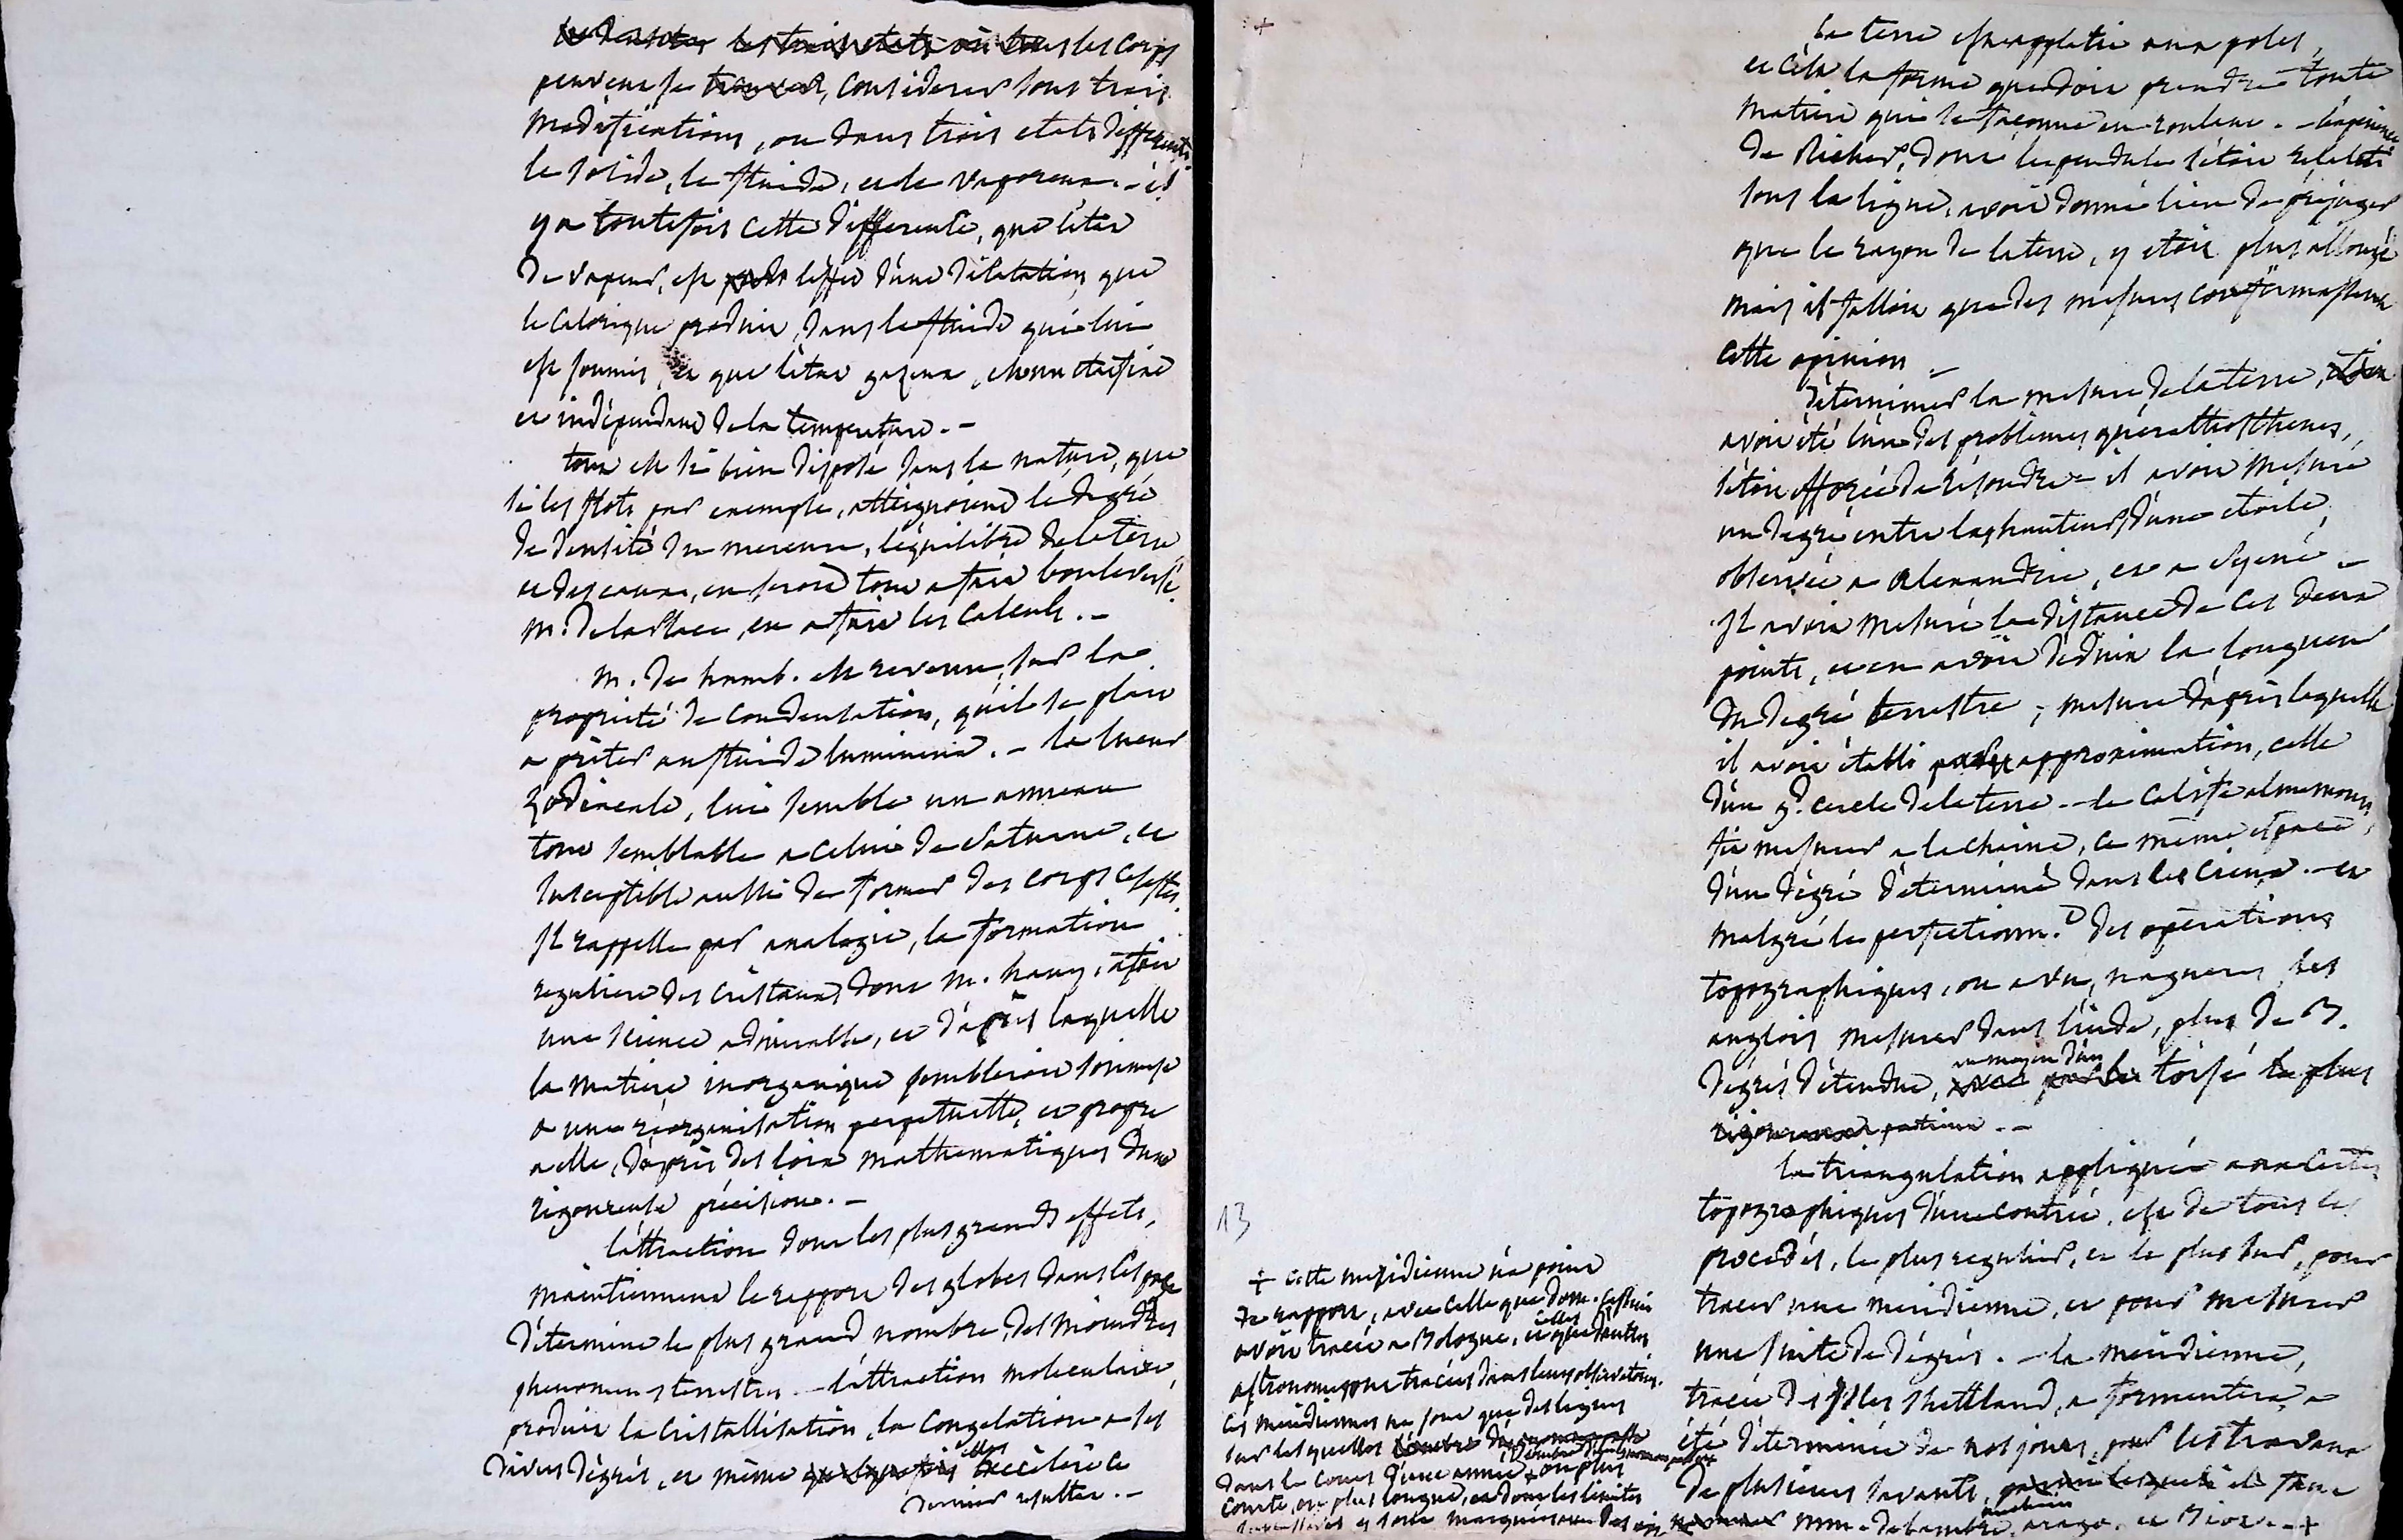 les trois etats où tous les corps
peuvent se trouver, considerer sous trois
modifications, ou dans trois etats differents
le solide, le fluide, et le vaporeux. - il
y a toutefois cette difference, que l'état
de vapeur, est l'effet d'une dilatation que
le calorique produit, dans le fluide qui lui
est soumis, et que l'état gazeux, est
et indépendant de la température. -
tout est si bien disposé dans la nature, que
si les flots par exemple, atteignoient le degré
de densité du mercure, l'équilibre de la terre
et des eaux, en seroit tout a fait bouleversé.
m. de la Place, en a fait les calculs. -
m. de humb. est revenu, sur la
propriété de condensation, qu'il se plait
a prêter au fluide lumineux. - la lueur
zodiacale, lui semble un anneau
tout semblable a celui de Saturne, et
susceptible aussi de former des corps celestes.
Il rappelle par analogie, la formation
reguliere des cristaux, dont m. hauy, a fait
une science admirable, et d'après laquelle
la matiere inorganique sembleroit soumise
a une réorganisation perpetuelle, et propre
a elle, d'après des loix mathematiques d'une
rigoureuse précision. -
l'attraction dont les plus grands effets,
maintiennent le rapport des globes dans l'espace
détermine le plus grand nombre, des moindres
phenomenes terrestres. - l'attraction moleculaire,
produit la cristallisation, la congelation a ses
divers dégrés, et même quelquefois elle accélère ce
dernier resultat. -
+
la terre est applatie aux poles,
et c'est la forme que doit prendre toute
matiere qui se façonne en roulant. - l'experience
de Richer, dont le pendule s'étoit ralenti
sous la ligne, avoit donné lieu de préjuger
que le rayon de la terre, y étoit plus allongé
mais il falloit que des mesures confirmassent
cette opinion -
déterminer la mesure de la terre,
avoit été l'un des problemes qu'erathosthenes,
s'étoit efforcé de résoudre - il avoit mesuré
un degré entre la hauteur d'une etoile,
observée a Alexandrie, et a Syene -
Il avoit mesuré la distance de ces deux
points, et en avoit déduit la longueur
du degré terrestre ; mesure d'après laquelle
il avoit établi par approximation, celle
d'un gd. cercle de la terre. - le calife almamoun,
fit mesurer a la chaine, ce même espace
d'un dégré déterminé dans les cieux. - et
malgré le perfectionnt. des opérations
topographiques, on a vu, nagueres les
anglois mesurer dans l'inde, plus de 13.
dégrés d'étendue, au moyen d'un toisé le plus
rigoureux patient. -
la triangulation appliquée aux cartes
topographiques d'une contrée, est de tous les
procédés, le plus regulier, et le plus sur, pour
tracer une meridienne, et pour mesurer
une suite de dégrés. - la méridienne,
tracée des isles Shettland, a formentera, a
été déterminée de nos jours, par les travaux
de plusieurs savants, parmi lesquels il faut
nommer mm. delambre, mechain, arago, et Biot. - +
13
+ cette meridienne n'a point
de rapport, avec celle que dom. Cassini
avoit tracée a Bologne, et celles que d'autres
astronomes ont tracées dans leurs observatoires.
ces méridiennes ne sont que des lignes
sur lesquelles l'ombre
dans le cours d'une année ou plus
courte, ou plus longue, et dont les limites